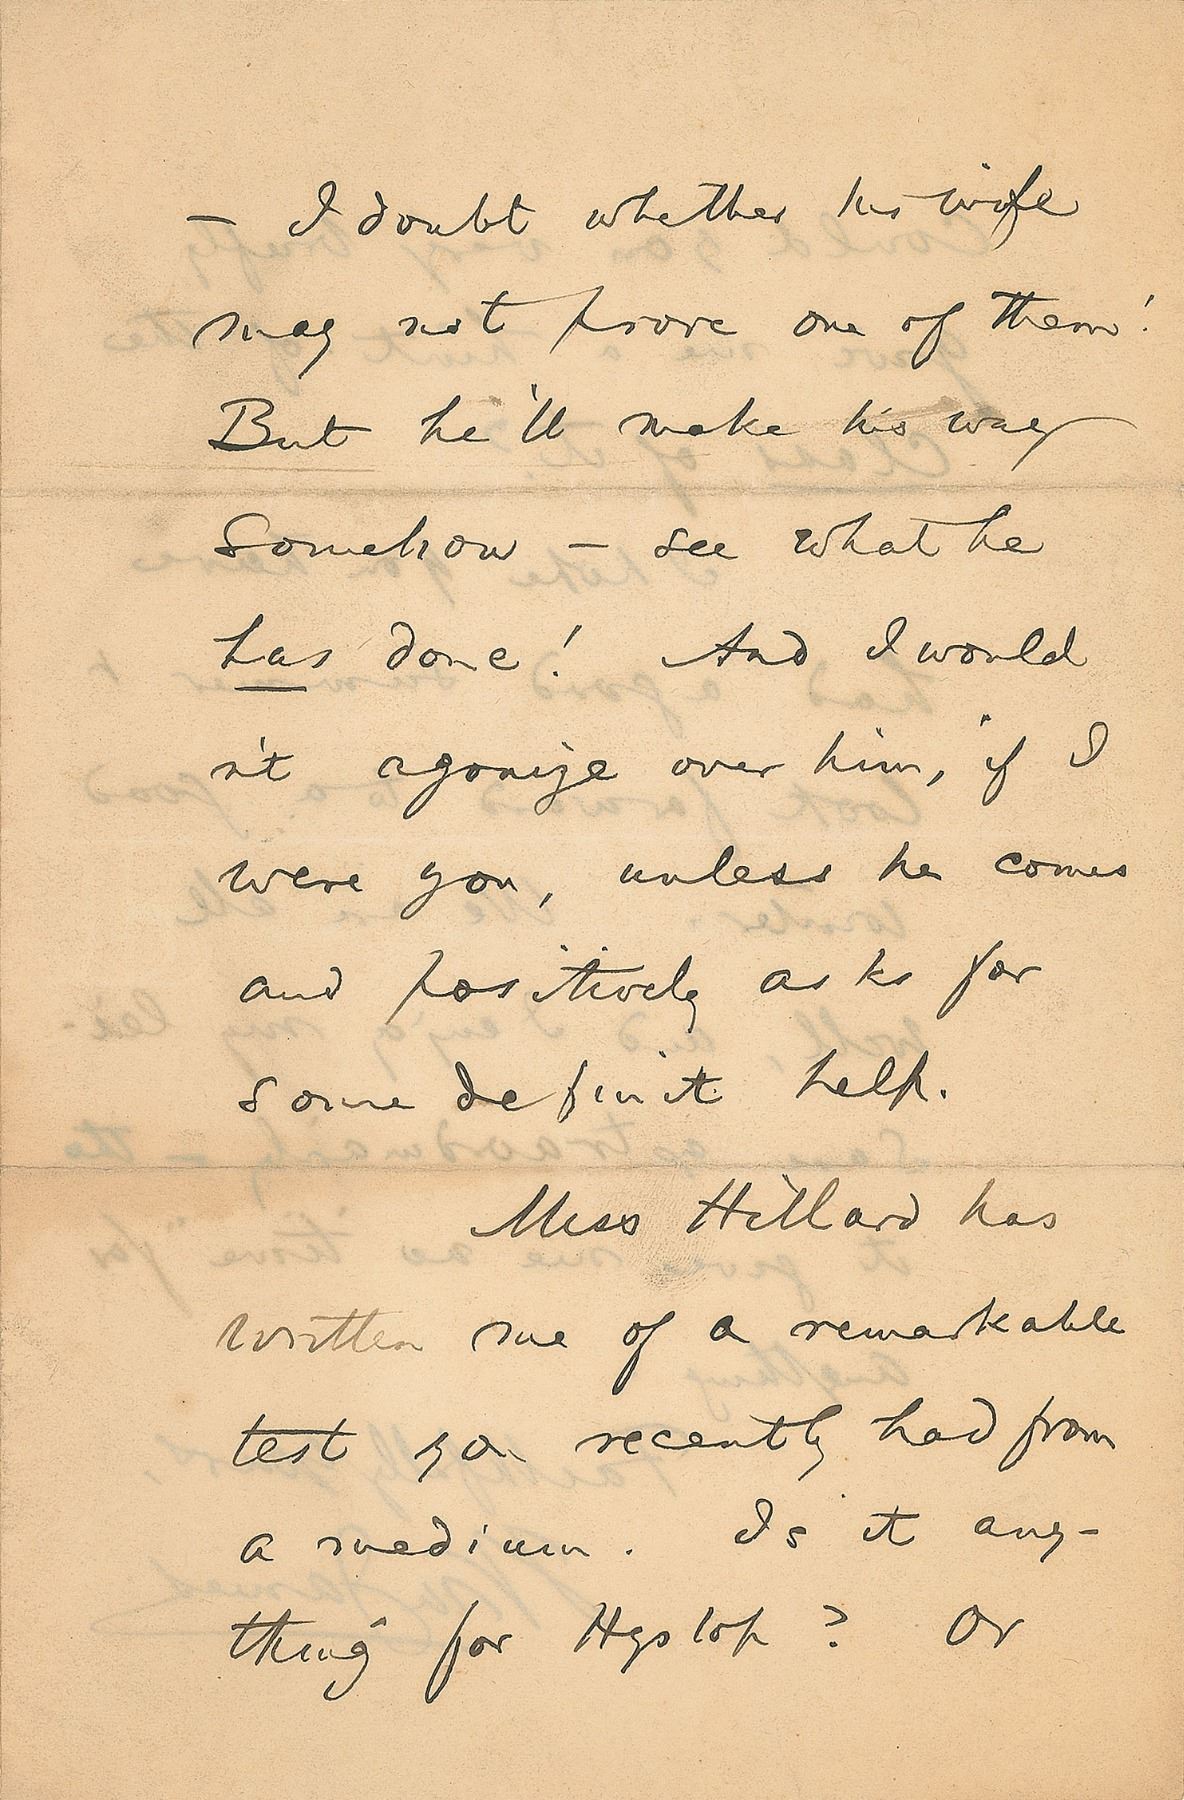 – I doubt whether his wife
may not prove one of them!
But he'll make his way
somehow – see what he
has done! And I would
n't agonize over him, if I
were you, unless he comes
and positively asks for
some definit help.
Miss Hillard has
written me of a remarkable
test you recently had from
a medium. Is it any-
thing for Hyslop? Or